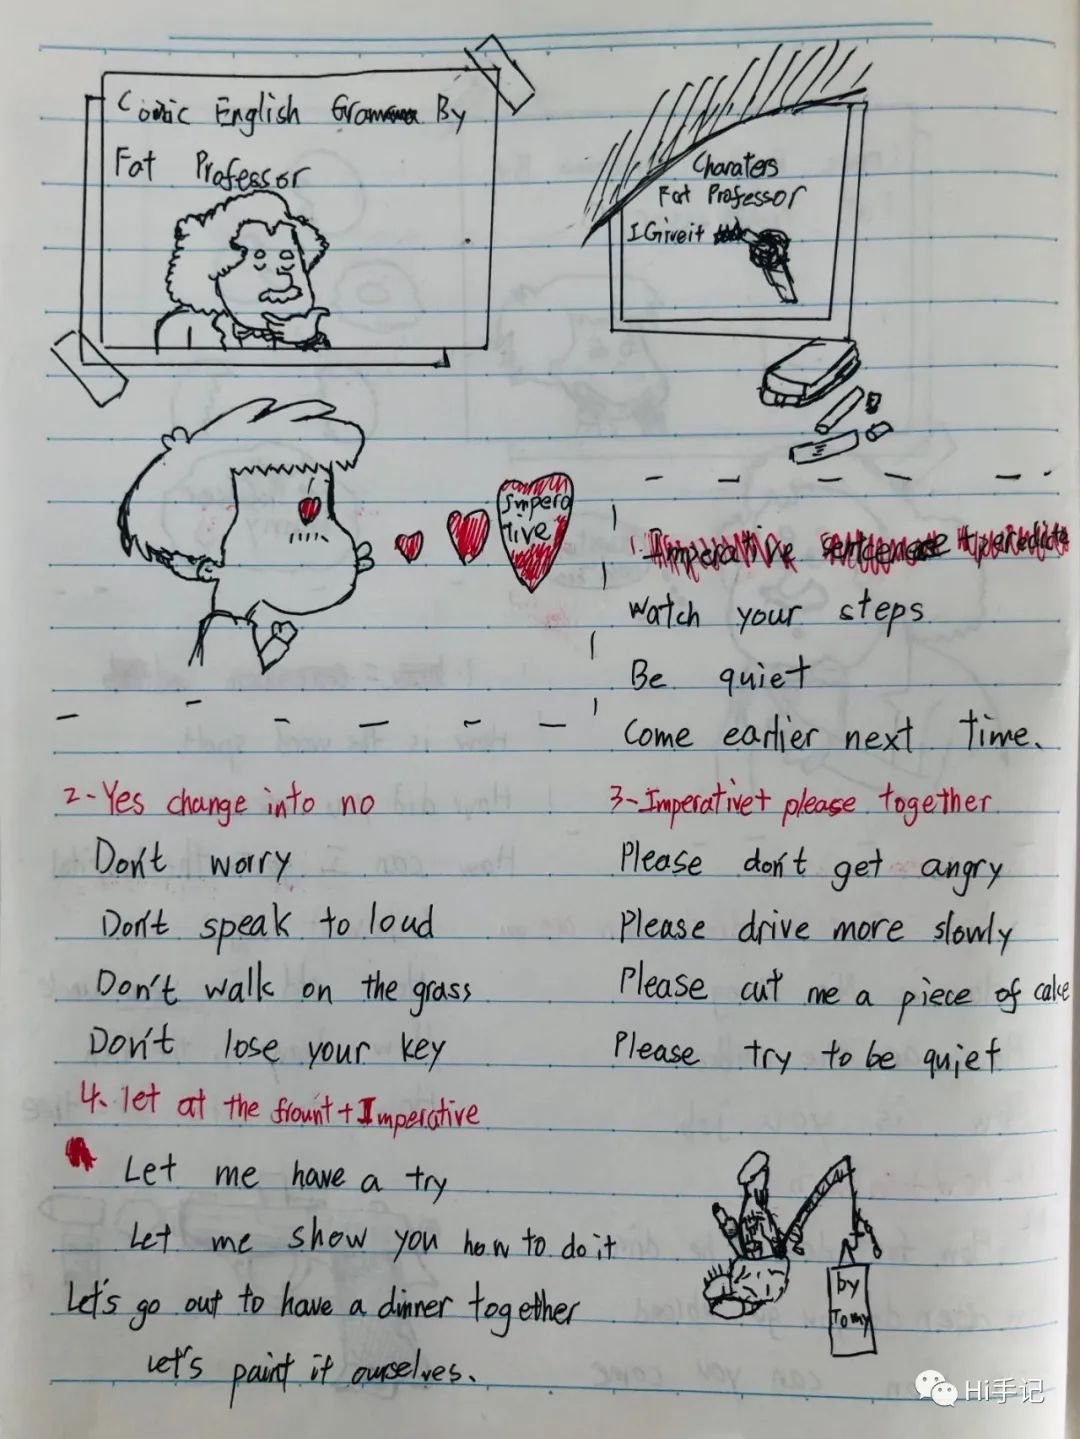 Comic English Grammar By
Fat Professor
Charaters
Fat Professor
I Giveit
Impera
tive
1. Imperative sentence
Watch your steps
Be quiet
Come earlier next time.
2-Yes change into no
Don't worry
Don't speak to loud
Don't walk on the grass
Don't lose your key
3-Imperative+ please together
Please don't get angry
Please drive more slowly
Please cut me a piece of cake
Please try to be quiet
4. let at the frount+Imperative
Let me have a try
Let me show you how to do it
Let's go out to have a dinner together
Let's paint it ourselves.
by
Tomy
Hi手记